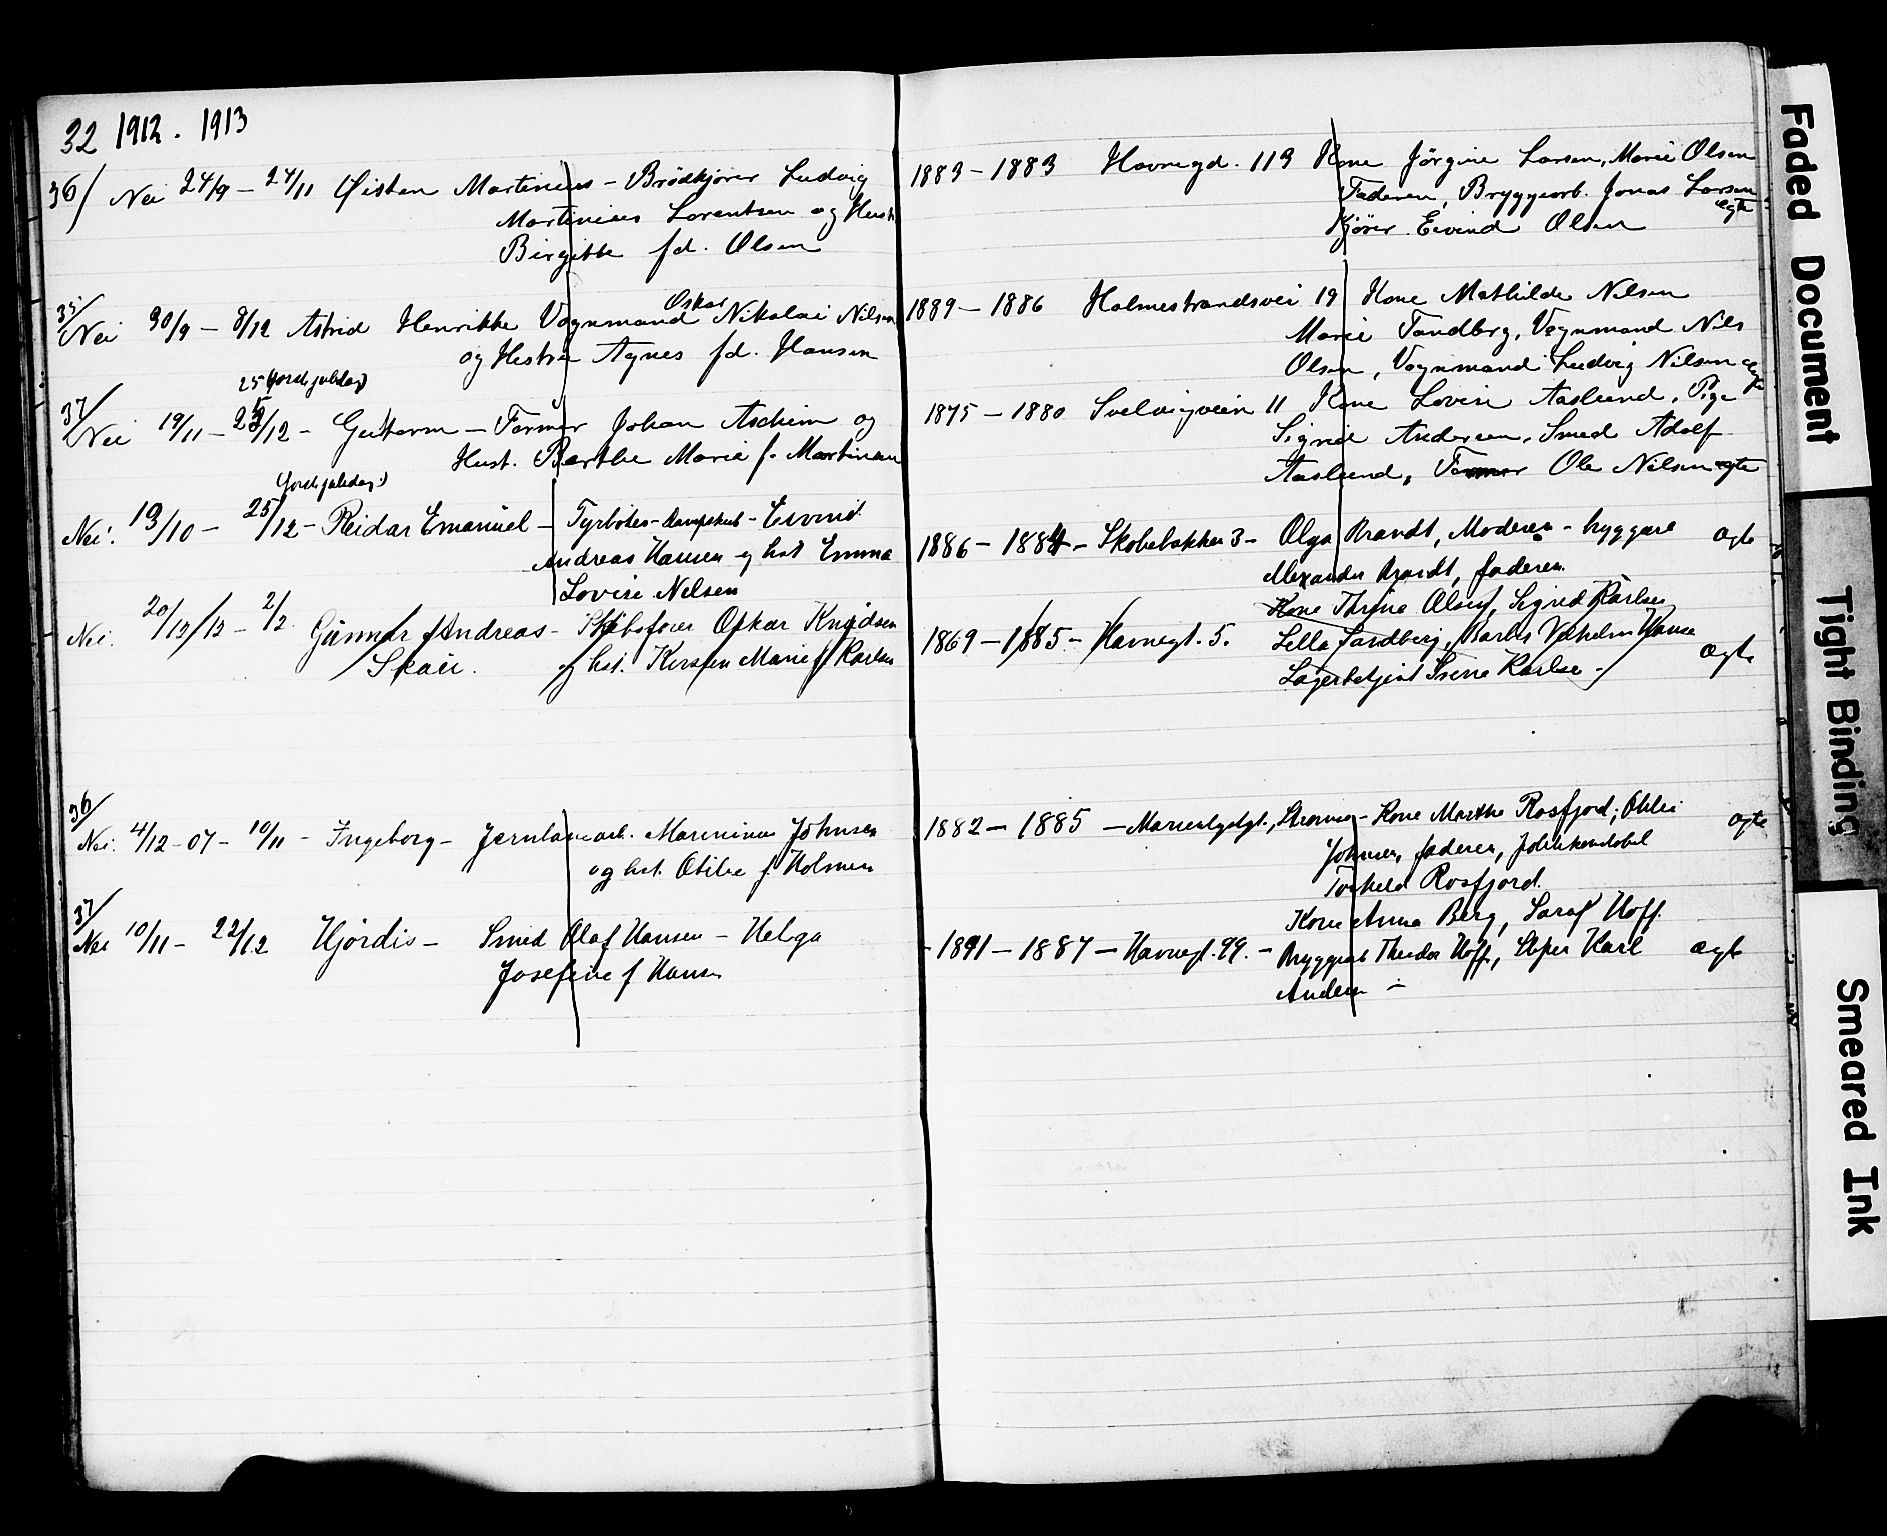 32 1912 - 1913
36/ Nei 24/9 - 24/11 Øisten Martinius - Brödkjörer Ludvig
Martinius Lorentsen og Hust
Birgitte fd. Olsen
1883 - 1883 Havnegd. 113 Kone Jörgine Larsen, Marie Olsen
Faderen, Bryggearb. Jonas Larsen
Kjörer Eivind Olsen ægte
35/ Nei 30/9 - 8/12 Astrid Henrikke Vognmand Oskar Nikolai Nilsen
og Hustru Agnes fd. Hansen
1889 - 1886 Holmestrandsvei 19 Kone Mathilde Nilsen
Marie Tandberg, Vognmand Nils
Olsen, Vognmand Ludvig Nilsen ægte
25 (forrst juledag)
37/ Nei 19/11 - 25/12 - Guttorm - Former Johan Ascheim og
Hust. Barthe Marie f. Martinsen
1875 - 1880 Svelvigveien 11 Kone Lovise Aaslund, Pige
Sigrid Andersen, Smed Adolf
Aaslund, Former Ole Nilsen ægte
(forst juledag)
Nei. 19/10 - 25/12 - Reidar Emanuel - Fyrböter - Dampskib - Eivind
Andreas Hansen og hst Emma
Lovise Nelsen
1886 - 1884 - Skobebakken 3 - Olga Brandt, Moderen - bryggare
Alexander Brandt, faderen. ægte
Nei. 20/12/12 - 2/2 Gunnar Andreas - Skibsförer Oskar Knudsen
Skau. og hst. Kirsten Marie f Karlsen
Kone Thrine Olsen, Sigrid Karlsen
1869 - 1885 - Havnegt. 5. Lilla Sandberg, Barber Vilhelm Hansen
Lagerbetjent Karlsen - ægte
36/
Nei. 4/12 - 07 - 10/11 - Ingeborg - Jernbanearb. Mareninus Johnsen
og hst. Otilie f Holmen
1882 - 1885 - Marienlystgt., Strömsö - Kone Marthe Rosfjord, Otilie
Johnsen, faderen, politikonstabel
Torkeld Rosfjord. ægte
37/
Nei 10/11 - 22/12 Hjördis - Smed Olaf Hansen - Helga
Josefine f Hansen
Kone Anna Berg, Sara Hoff.
- 1891 - 1887 - Havnegt. 99. - Bryggearb Theodor Hoff, Karl
Andersen - ægte
Faded Document
Tight Binding
Smeared Ink